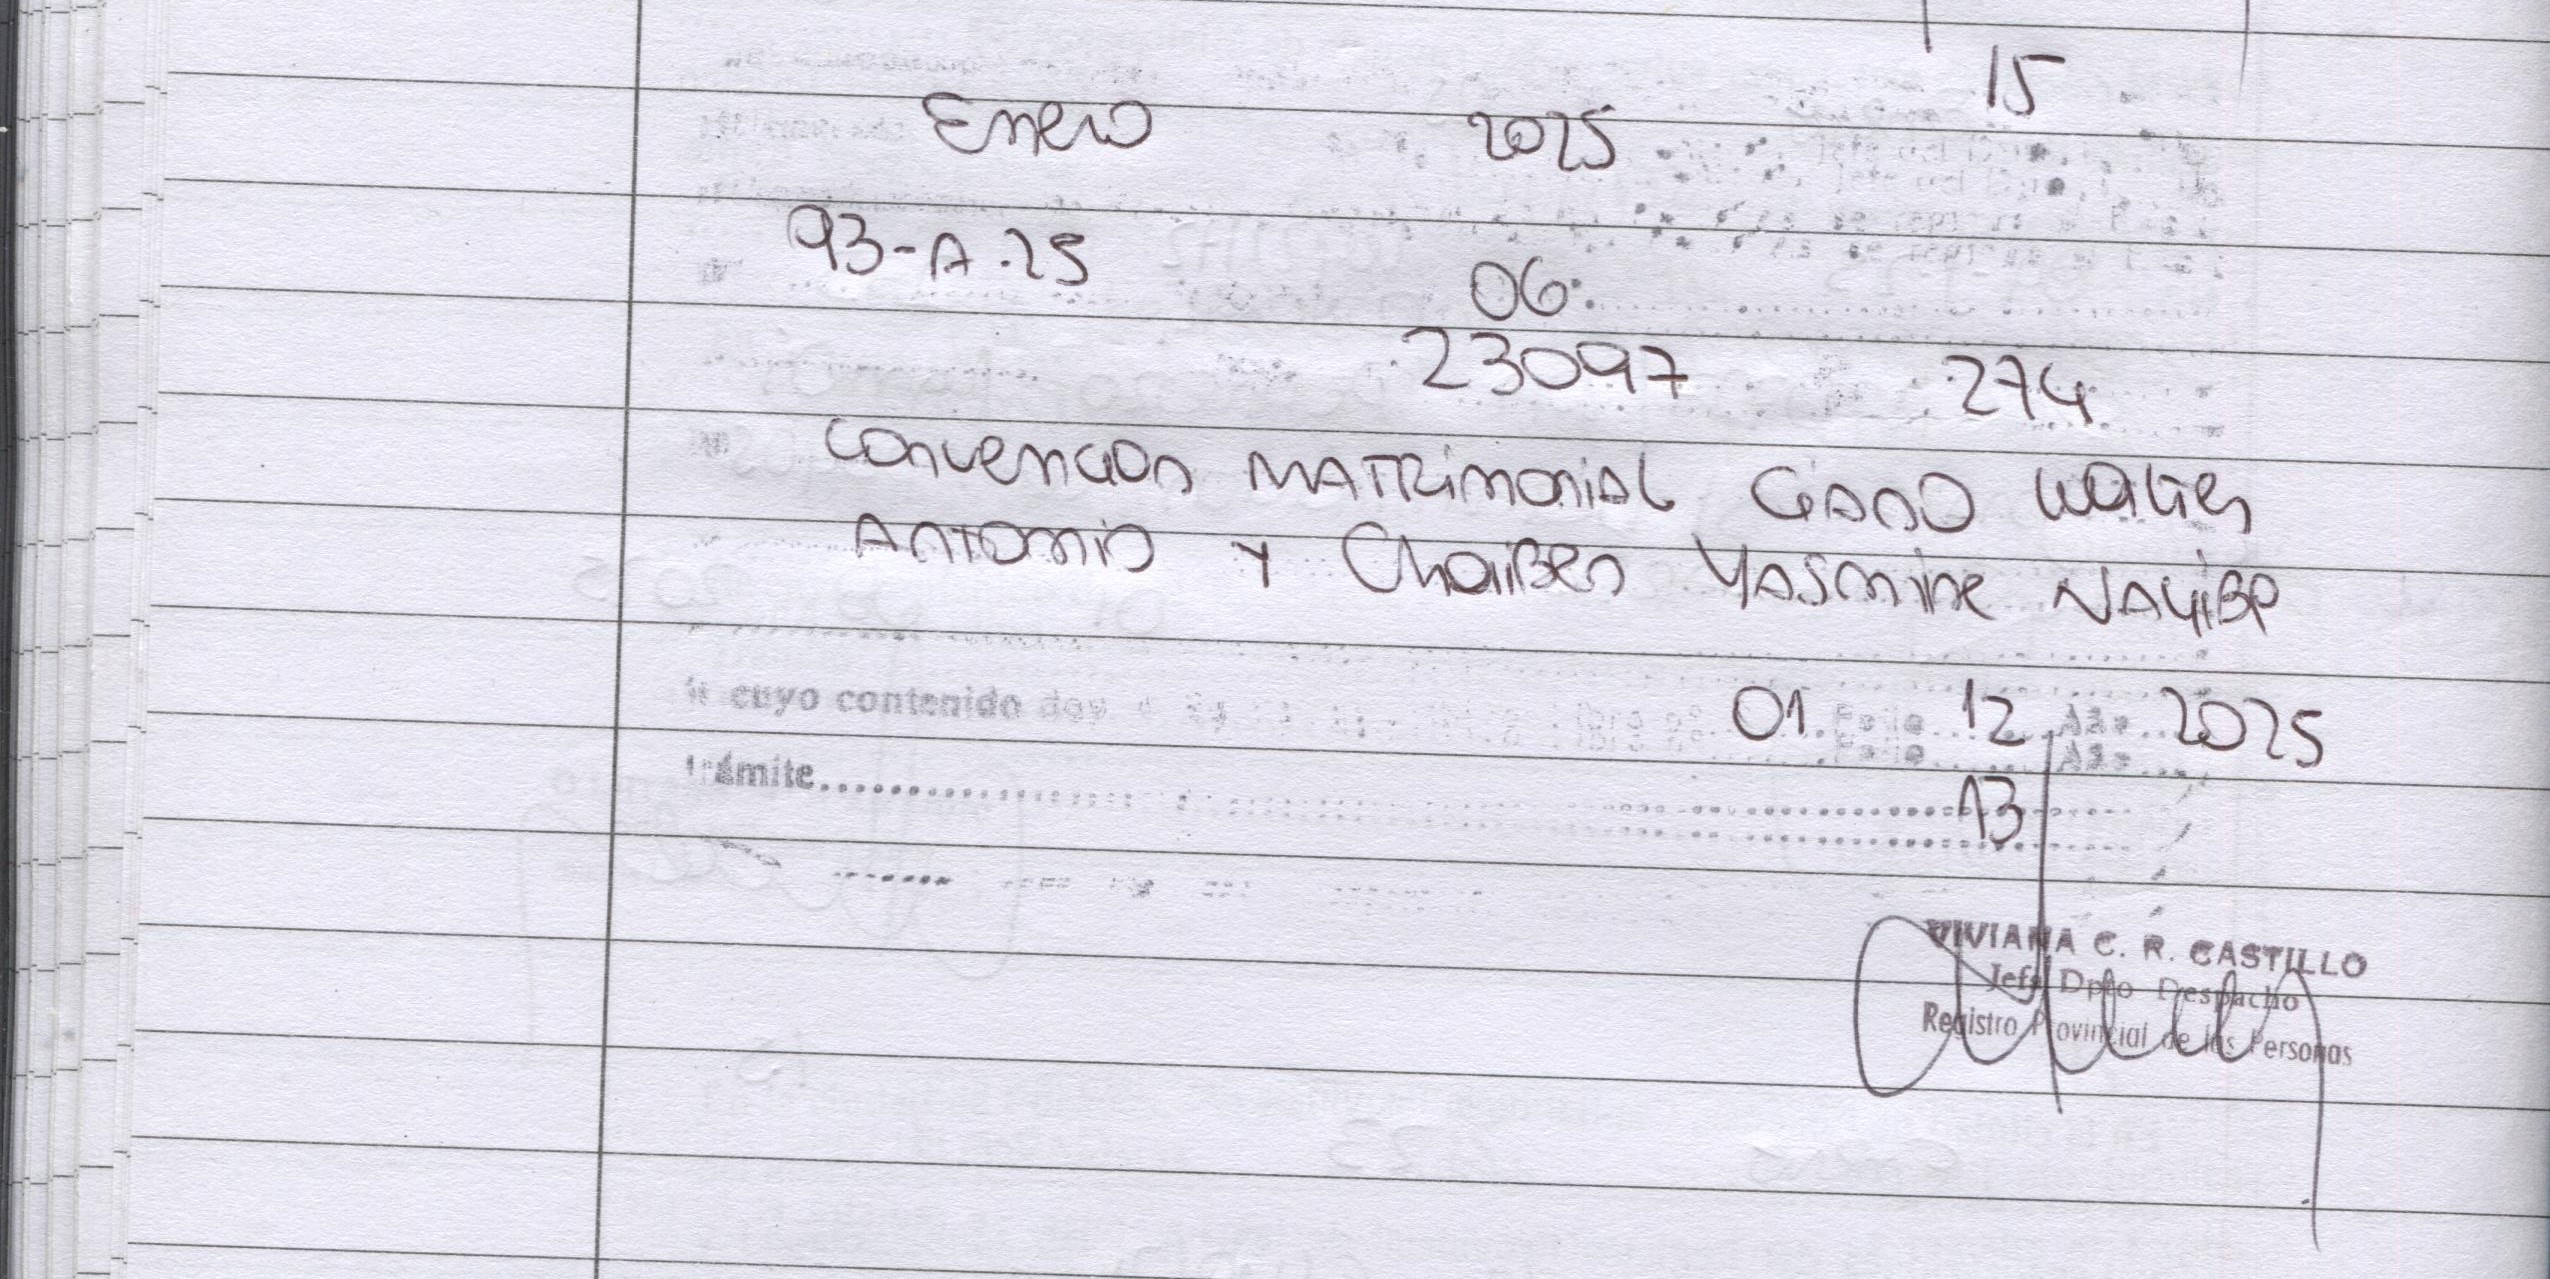 15
Enero 2025
93-A.25 06
23097 274
Convencion MATRimoniAL GANO Walter
Antonio y Chaiben YASMine NAYiBe
01 12 2025
cuyo contenido doy
trámite
13
VIVIANA C. R. CASTILLO
Jefe Dpto Despacho
Registro Provincial de las Personas